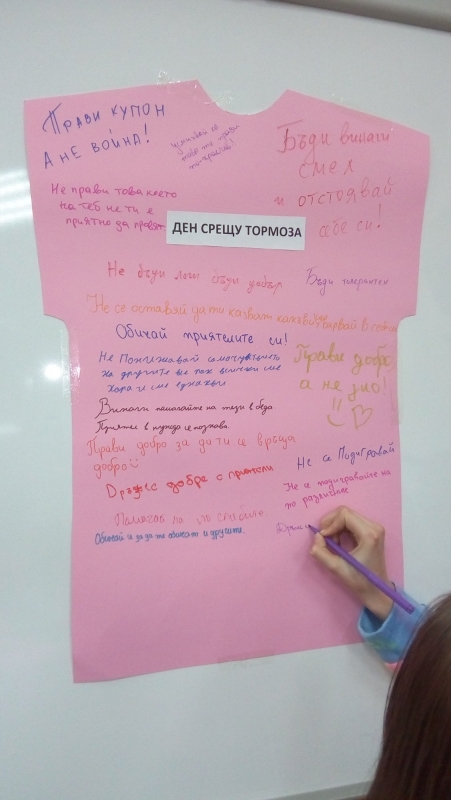 Прави купон
А не война!
Усмивай се
това те прави
по-красив!
Бъди винаги
смел
и отстоявай
себе си!
Не прави това което
на теб не ти е
приятно да правят.
ДЕН СРЕЩУ ТОРМОЗА
Не бъди лош бъди добър
Бъди толерантен
Не се оставяй да ти казват какъв си вярвай в себе си
Обичай приятелите си!
Не Понижавай самочувствието
на другите все пак всички сме
хора и сме еднакви
Прави добро
а не зло!
Винаги помагайте на тези в беда
Приятел в нужда се познава.
Прави добро за да ти се връща
добро
Не се Подигравай
Дръж се добре с приятели
Не се подигравайте на
по различните
Помагай на по слабите.
Обичай и за да те обичат и другите.